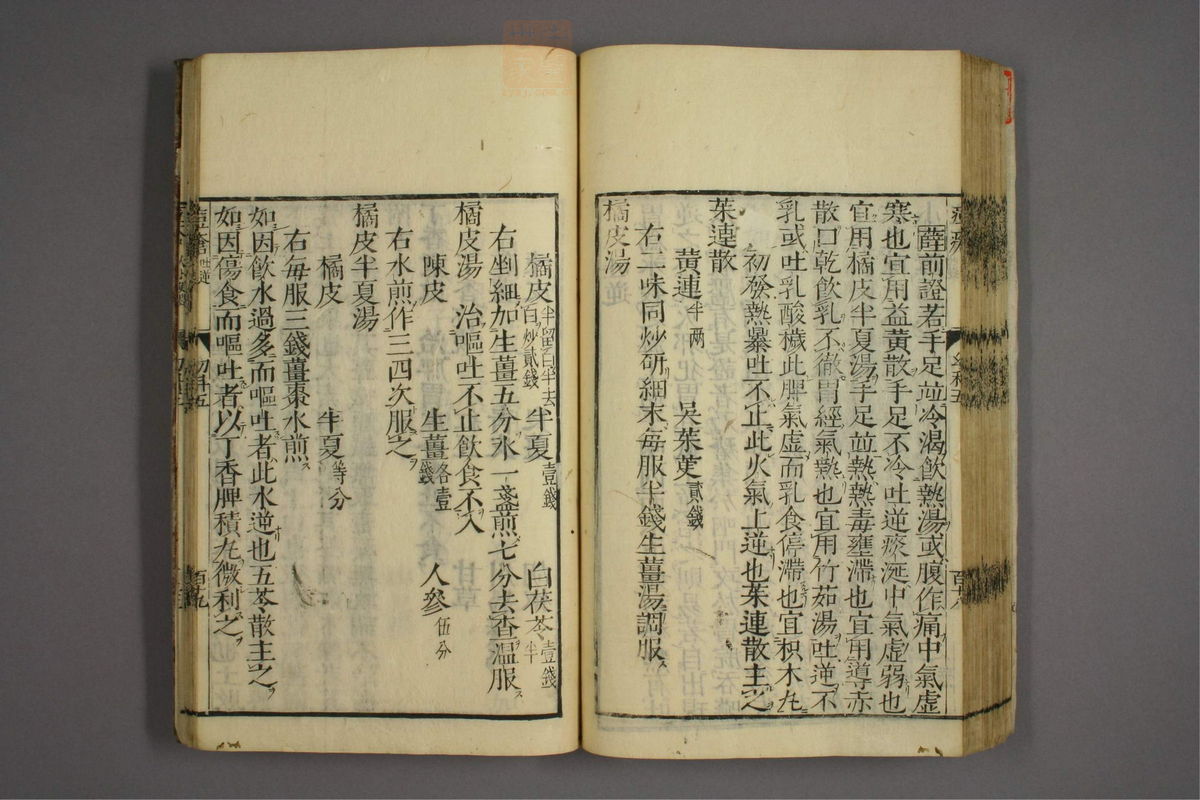 薛前證若手足並冷渴飲熱湯或腹作痛中氣虛
寒也宜用益黃散手足不冷吐逆痰涎中氣虛弱也
宜用橘皮半夏湯手足並熱熱毒壅滯也宜用導赤
散口乾飲乳不徹胃經氣熱也宜用竹茹湯吐逆不
乳或吐乳酸穢此脾氣虛而乳食停滯也宜枳木丸
初發熱暴吐不止此火氣上逆也茱連散主之
茱連散
黃連半兩 吳茱萸貳錢
右二味同炒研細末每服半錢生薑湯調服
橘皮湯
橘皮半留白半去白炒貳錢 半夏壹錢 白茯苓壹錢半
右剉細加生薑五分水一盞煎七分去渣溫服
橘皮湯 治嘔吐不止飲食不入
陳皮 生薑各壹錢 人參伍分
右水煎作三四次服之
橘皮半夏湯
橘皮 半夏等分
右每服三錢薑棗水煎
如因飲水過多而嘔吐者此水逆也五苓散主之
如因傷食而嘔吐者以丁香脾積丸微利之